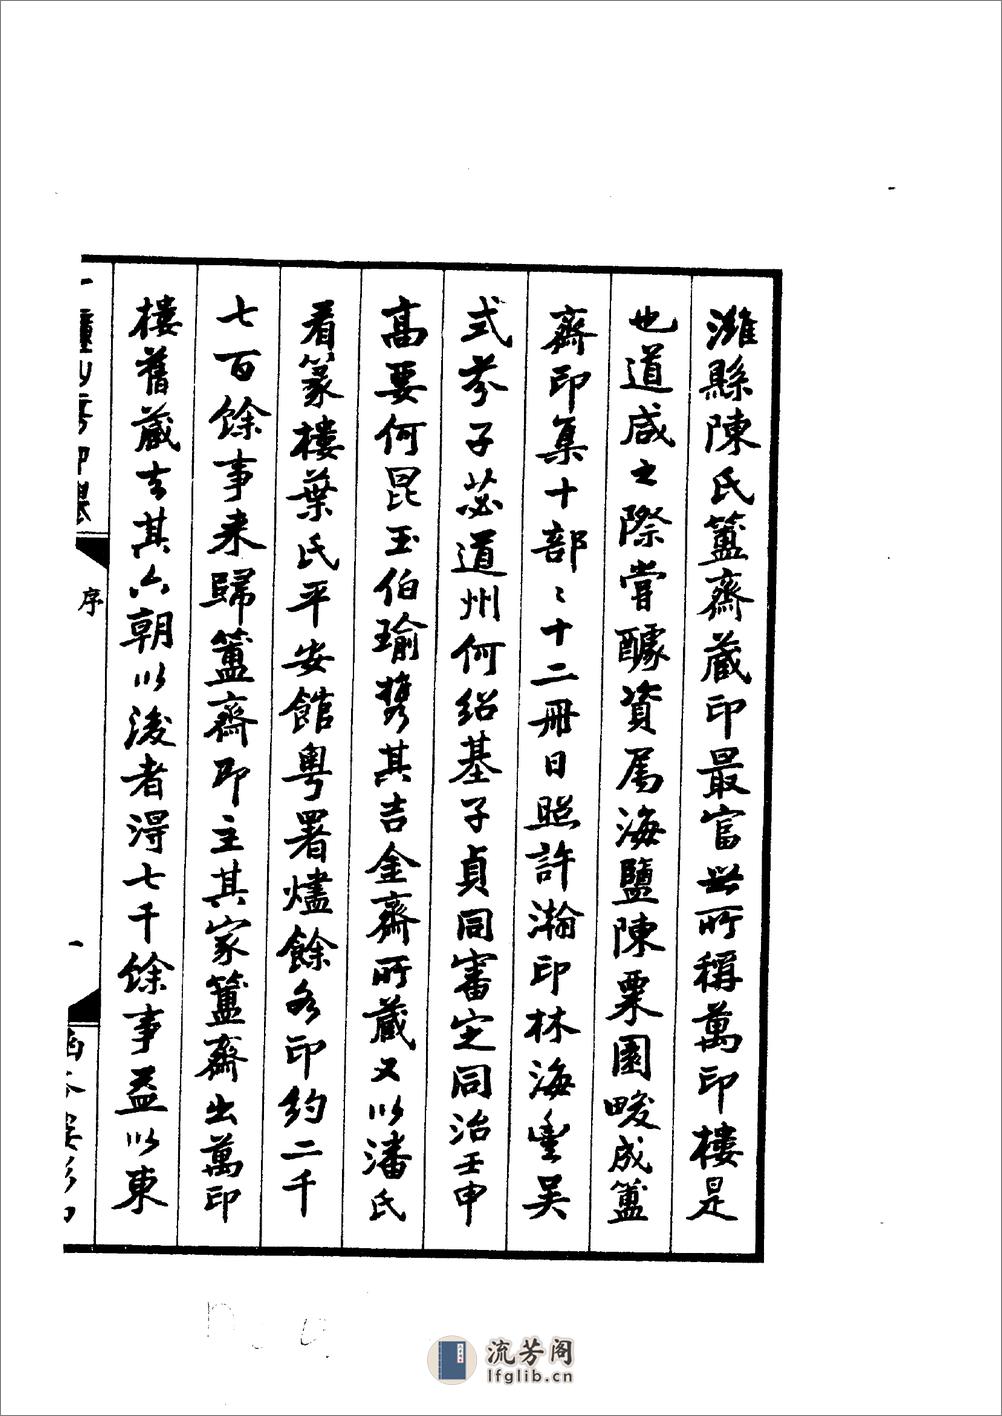 濰縣陳氏簠齋藏印最富世所稱萬印樓是
也道咸之際嘗醵資屬海鹽陳粟園畯成簠
齋印集十部〻十二冊日照許瀚印林海豐吳
式芬子苾道州何紹基子貞同審定同治壬申
高要何昆玉伯瑜攜其吉金齋所藏又以潘氏
看篆樓葉氏平安館粵署燼餘各印約二千
七百餘事来歸簠齋即主其家簠齋出萬印
樓舊藏去其六朝以後者得七千餘事益以東
十鐘山房印舉
序
一
涵芬樓影印
流芳阁
lfglib.cn